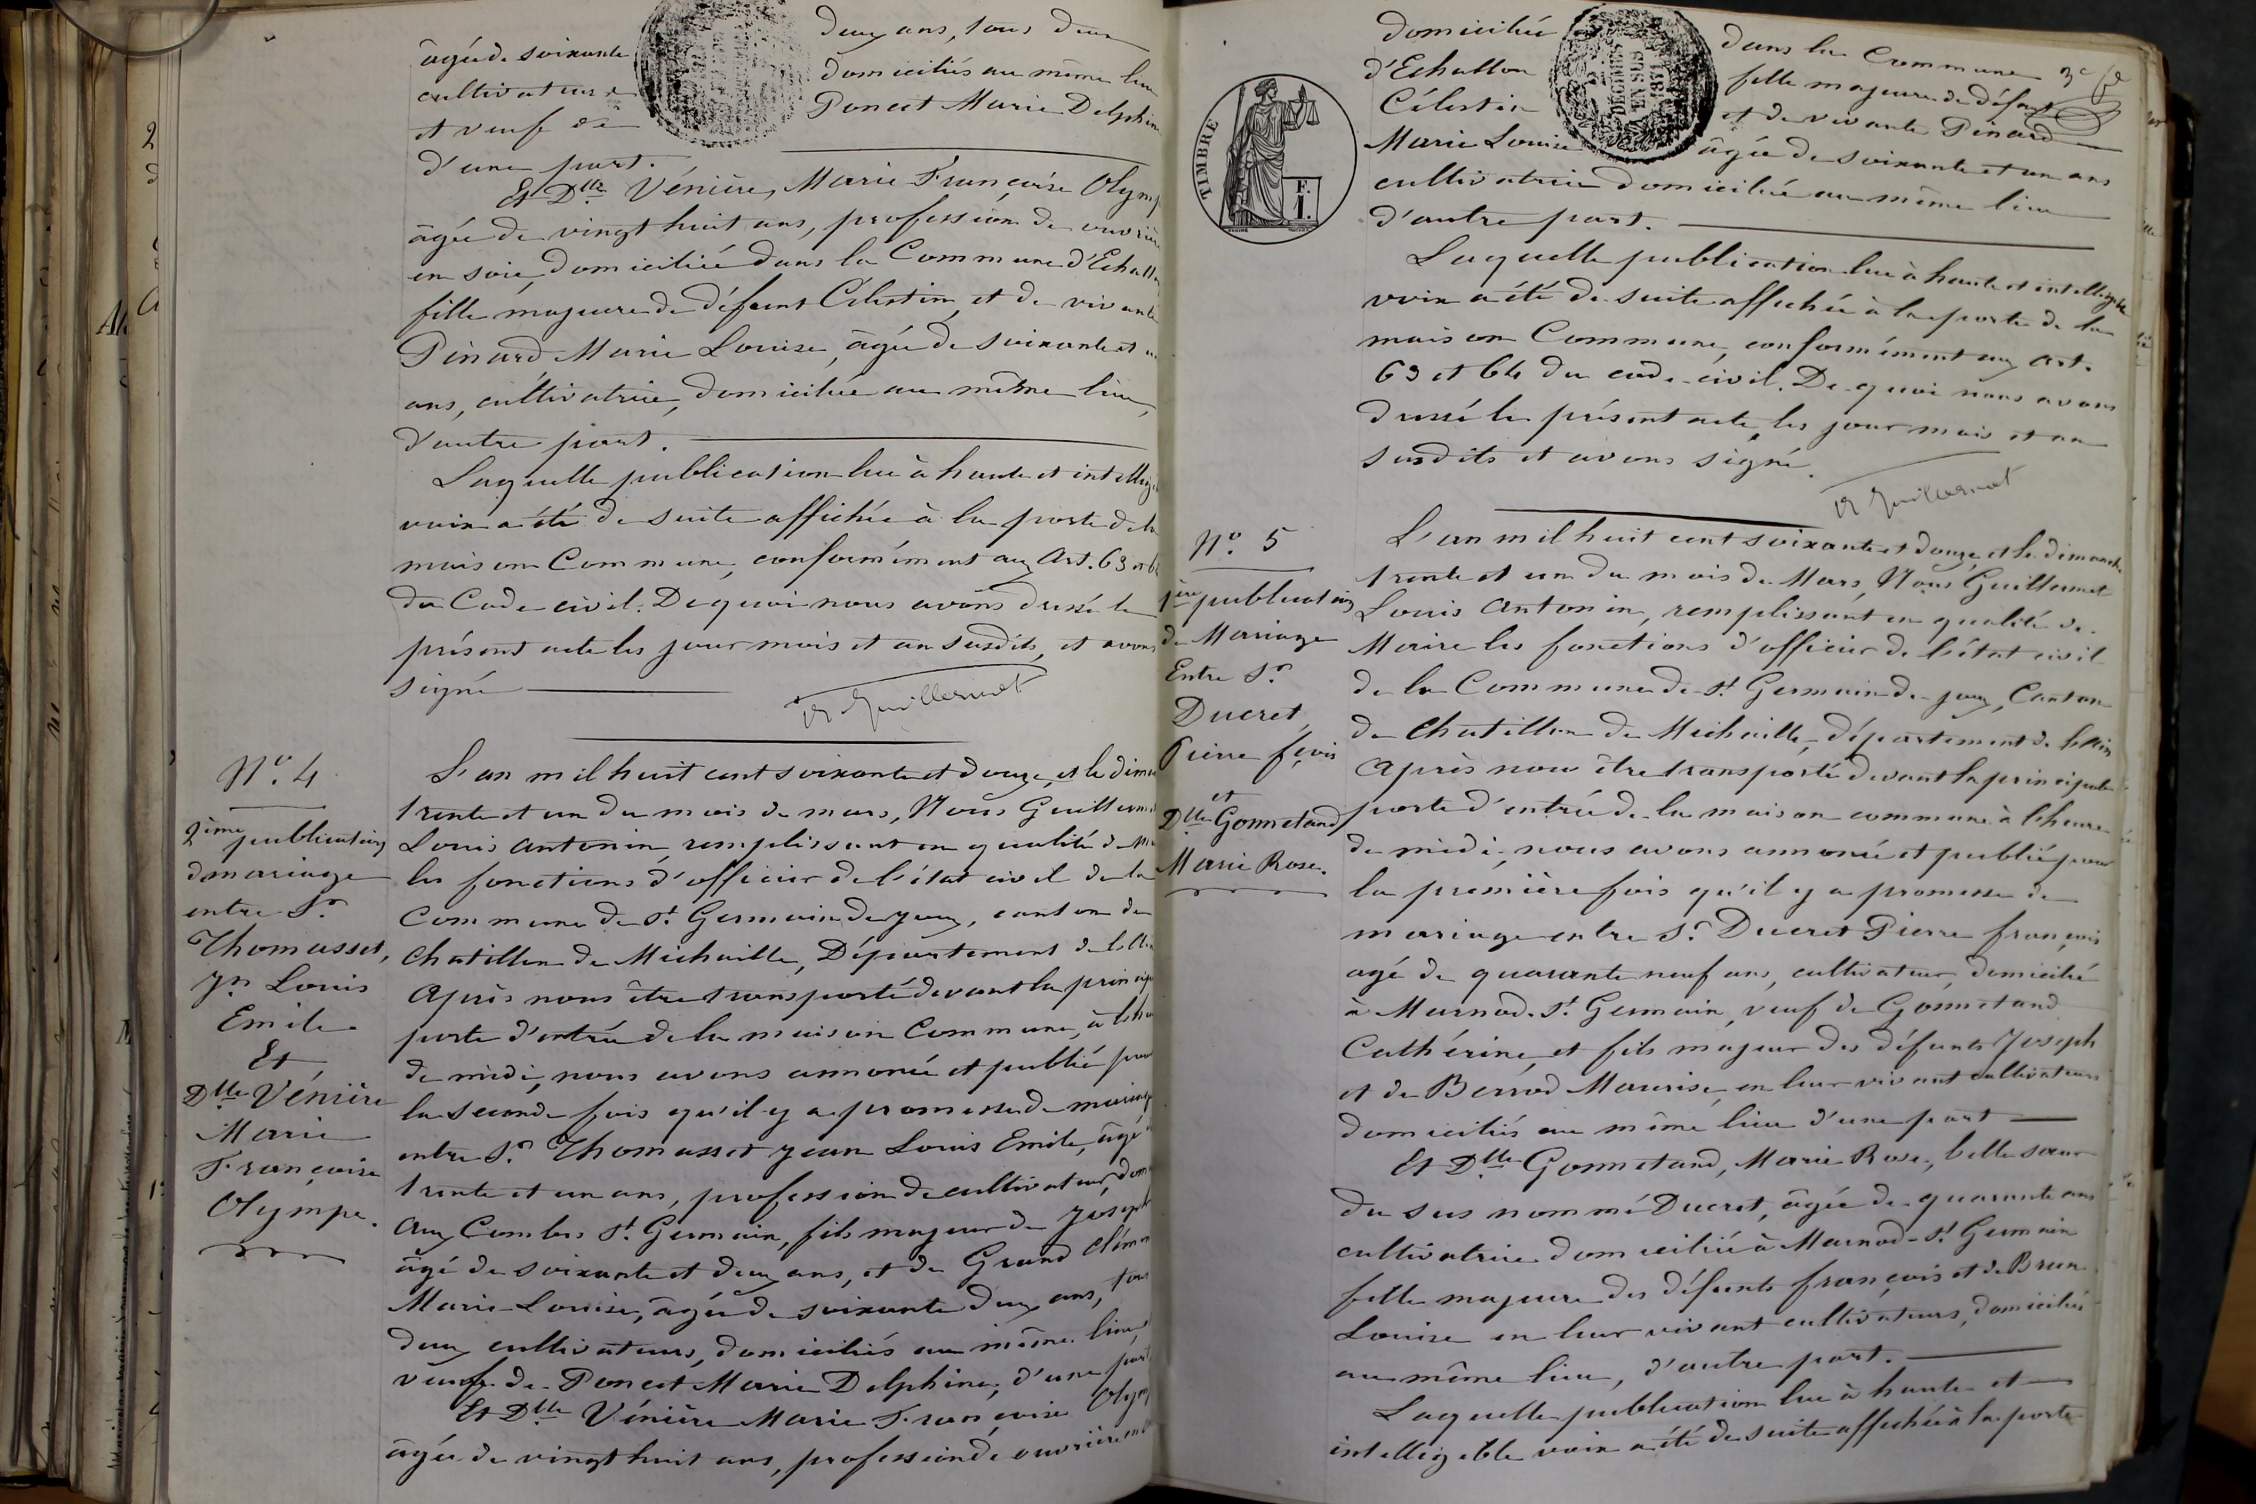 âgée de soixante deux ans, tous deux
cultivateurs domiciliés au même lieu
et veuf de Poncet Marie Delphine
d'une part.
Et Dlle Vénière, Marie Françoise Olymp
âgée de vingt huit ans, profession de ouvrière
en soie, domiciliée dans la Commune d'Echall
fille majeure de défunt Célestin, et de vivante
Pinard Marie Louise, âgée de soixante et un
ans, cultivatrice, domiciliée au même lieu,
d'autre part.
Laquelle publication lue à haute et intellig
voix a été de suite affichée à la porte de la
maison Commune, conformément aux Art. 63 et 64
du Code civil. De quoi nous avons dressé le
présent acte les jour mois et an susdits, et avons
signé
Guillermet
No. 4
2ème publication
de mariage
entre Sr.
Thomasset,
Jn Louis
Emile
Et
Dlle Vénière
Marie
Françoise
Olympe.
L'an mil huit cent soixante et douze, et le dima
trente et un du mois de mars, Nous Guillerm
Louis Antonin, remplissant en qualité de m
les fonctions d'officier de l'état civil de la
Commune de St Germain de Joux, canton de
Chatillon de Michaille, Département de l'Ain
Après nous être transporté devant la princip
porte d'entrée de la maison Commune, à l'heu
de midi, nous avons annoncé et publié pour
la seconde fois qu'il y a promesse de mariag
entre Sr. Thomasset Jean Louis Emile, âgé
trente et un ans, profession de cultivateur, dom
aux Combes St. Germain, fils majeur de Joseph
âgé de soixante et deux ans, et de Grand Clém
Marie-Louise, âgée de soixante deux ans, tous
deux cultivateurs, domiciliés au même lieu,
veuf de Poncet Marie Delphine, d'une part
Et Dlle Vénière Marie Françoise Olym
âgée de vingt huit ans, profession de ouvrière en
TIMBRE
F.
1.
DÉCIMES
EN SUS
1871
3e
domiciliée dans la Commune
d'Echallon fille majeure de défunt
Célestin et de vivante Pinard
Marie Louise âgée de soixante et un ans
cultivatrice domiciliée au même lieu
d'autre part.
Laquelle publication lue à haute et intelligible
voix a été de suite affichée à la porte de la
maison Commune, conformément aux art.
63 et 64 du code civil. De quoi nous avons
dressé le présent acte, les jour mois et an
susdits et avons signé.
Guillermet
No. 5
1ère publication
de Mariage
Entre Sr.
Ducret,
Pierre fçois
et
Dlle Gonnetand
Marie Rose.
L'an mil huit cent soixante et douze, et le dimanche
trente et un du mois de Mars, Nous Guillermet
Louis Antonin, remplissant en qualité de
Maire les fonctions d'officier de l'état civil
de la Commune de St Germain de joux, Canton
de Chatillon de Michaille, département de l'Ain
Après nous être transporté devant la principale
porte d'entrée de la maison commune à l'heure
de midi, nous avons annoncé et publié pour
la première fois qu'il y a promesse de
mariage entre Sr. Ducret Pierre françois
agé de quarante neuf ans, cultivateur, domicilié
à Marnod-St. Germain, veuf de Gonnetand
Cathérine, et fils majeur des défunts Joseph
et de Berrod Maurise, en leur vivant cultivateurs
domiciliés au même lieu d'une part
Et Dlle Gonnetand, Marie Rose, belle sœur
du sus nommé Ducret, âgée de quarante ans
cultivatrice domiciliée à Marnod-St Germain
fille majeure des défunts françois et de Brun
Louise en leur vivant cultivateurs, domiciliés
au même lieu, d'autre part.
Laquelle publication lue à haute et
intelligible voix a été de suite affichée à la porte